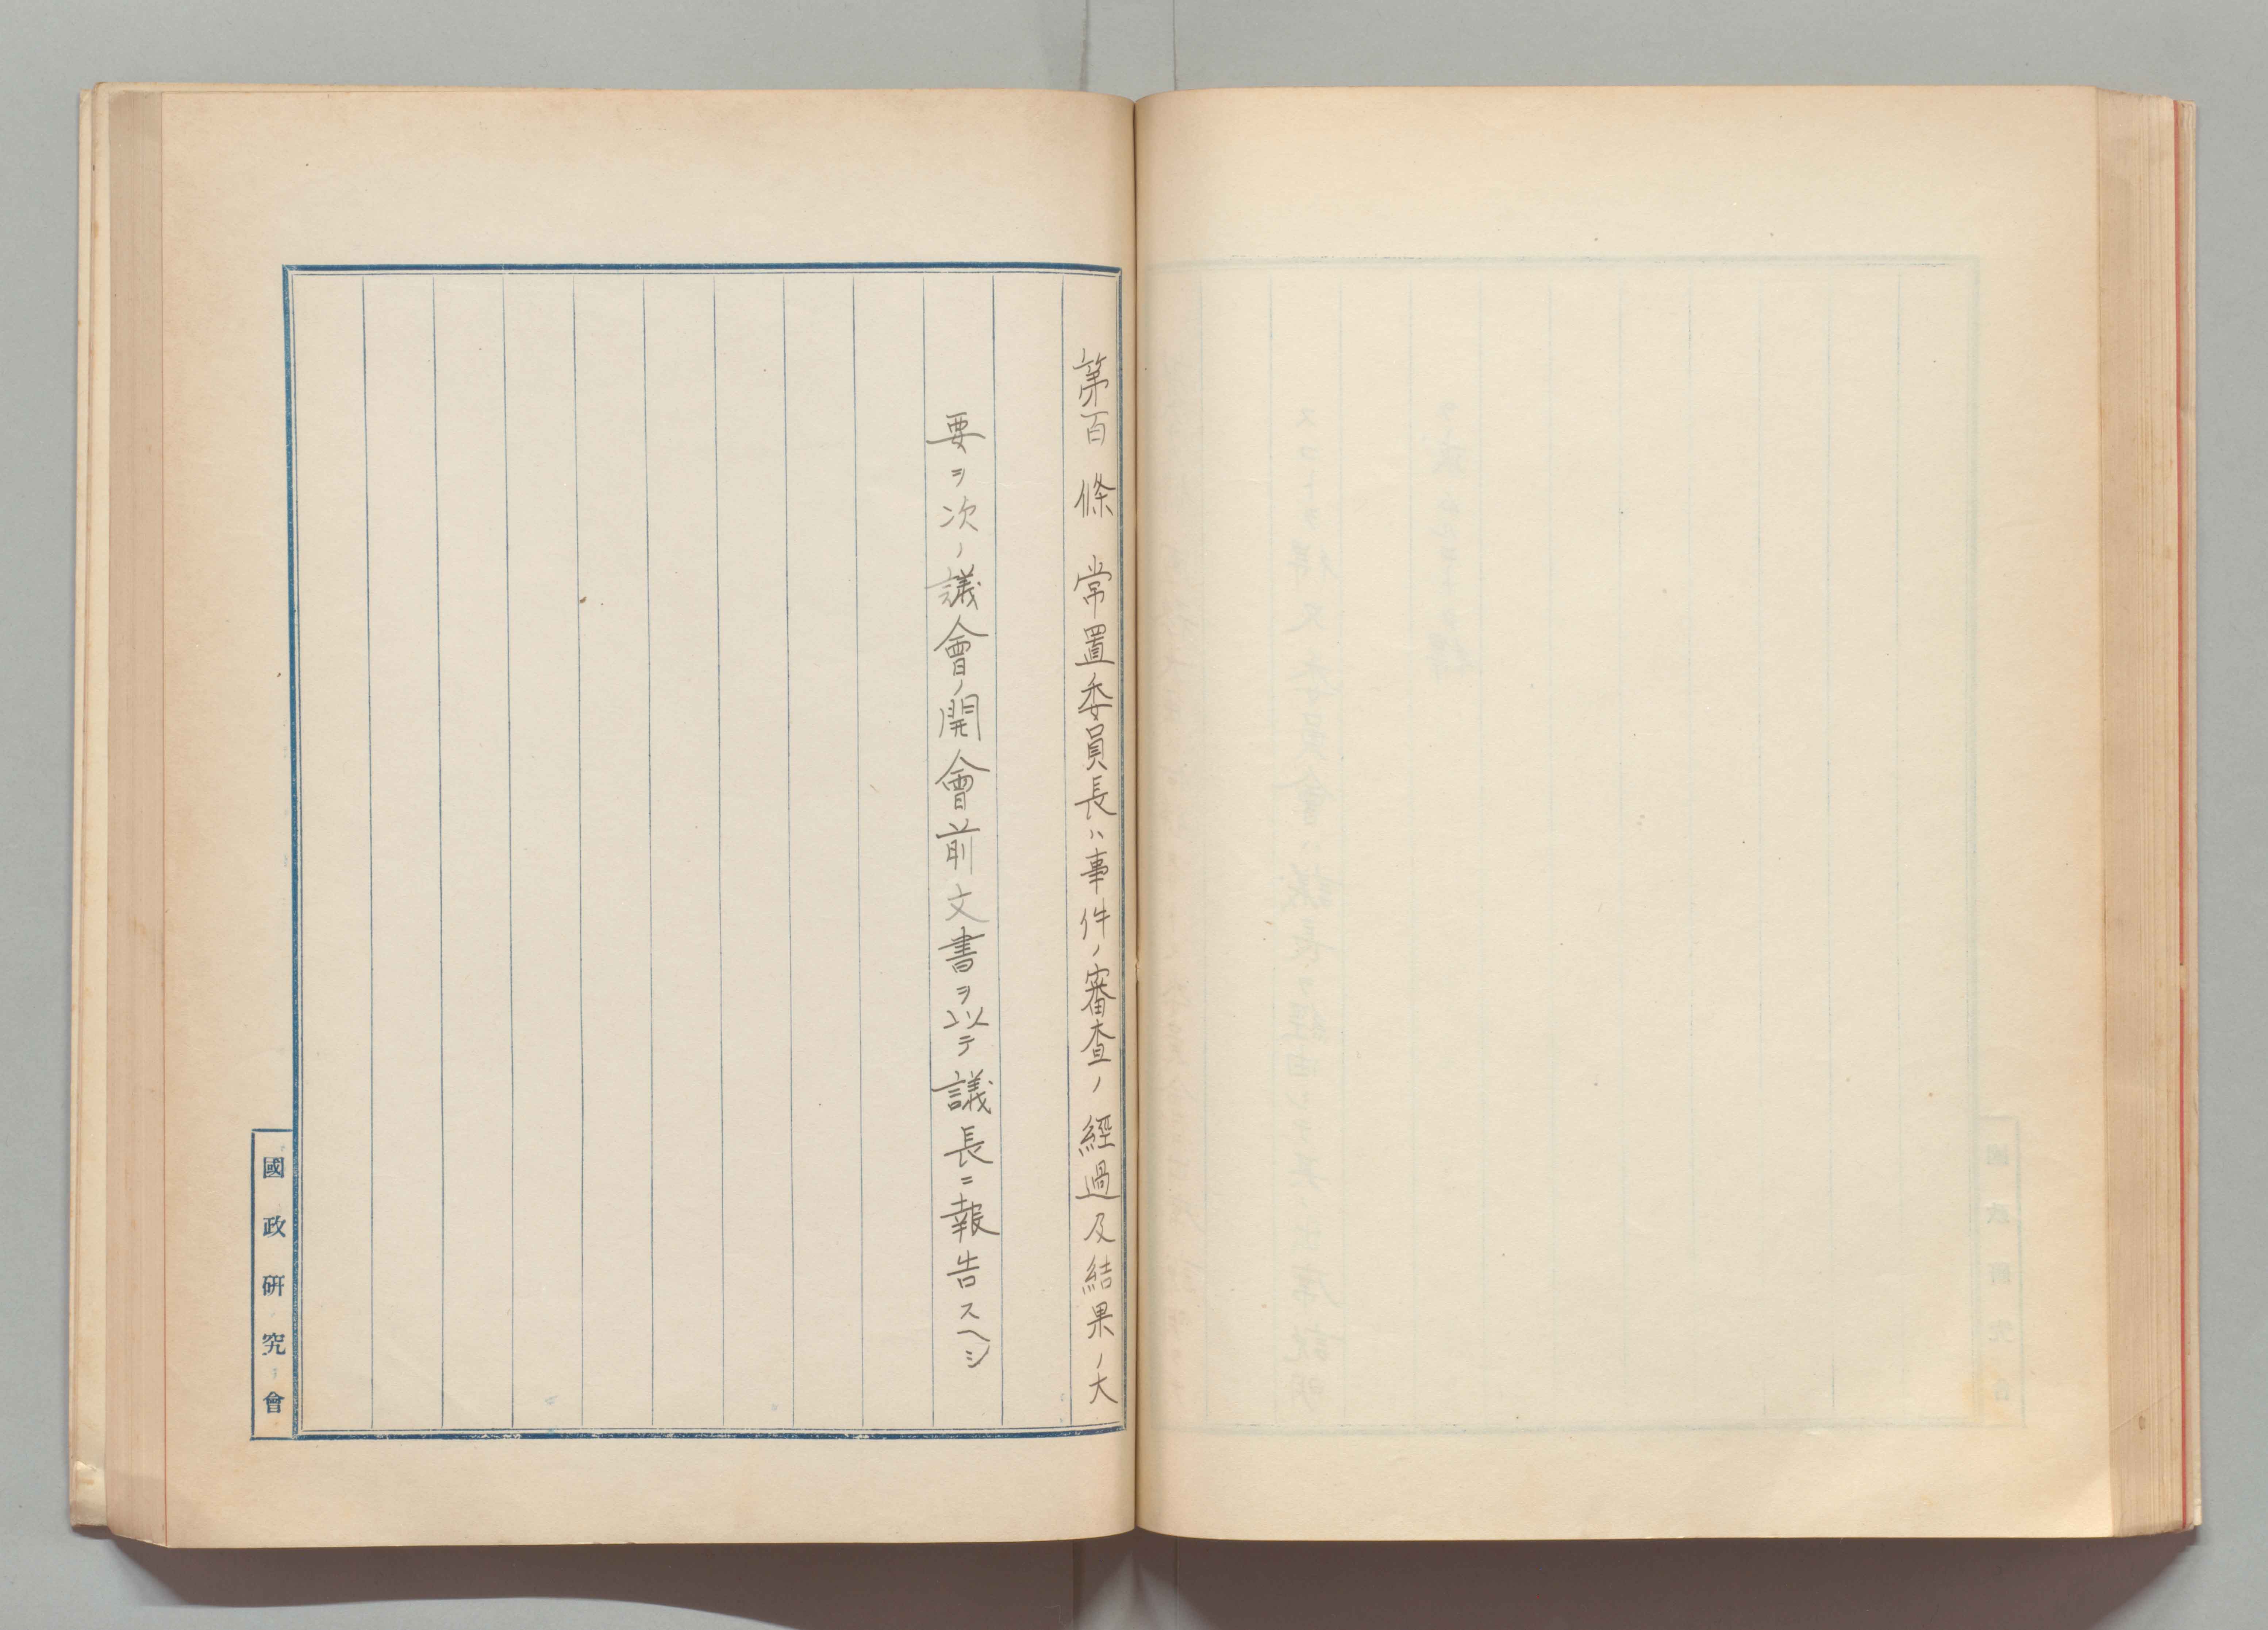 第百條　常置委員長ハ事件ノ審査ノ經過及結果ノ大
要ヲ次ノ議會ノ開會前文書ヲ以テ議長ニ報告スヘシ
國政硏究會